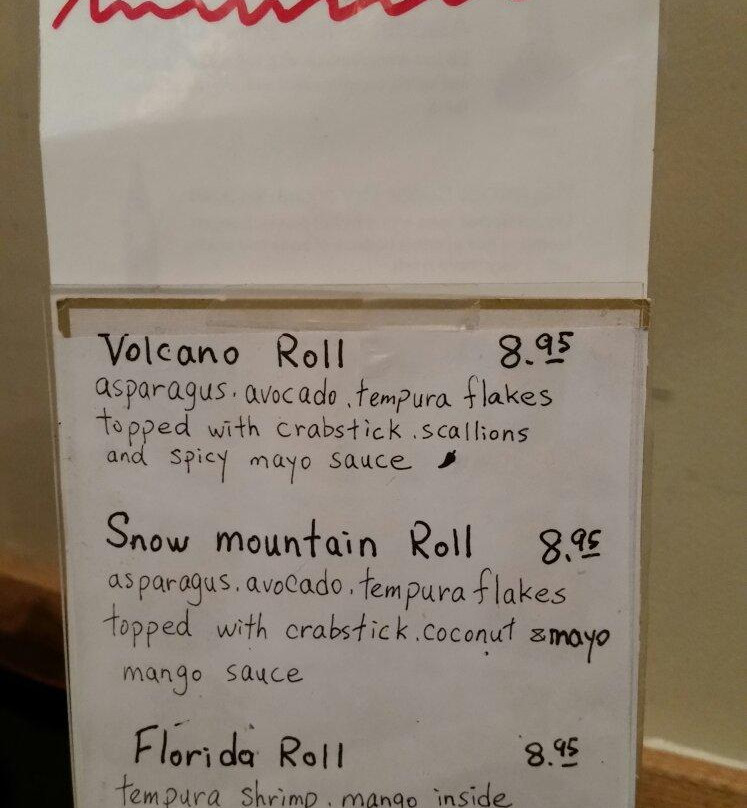 Volcano Roll 8.95
asparagus. avocado. tempura flakes
topped with crabstick. scallions
and spicy mayo sauce
Snow mountain Roll 8.95
asparagus. avocado. tempura flakes
topped with crabstick. coconut & mayo
mango sauce
Florida Roll 8.95
tempura shrimp. mango inside